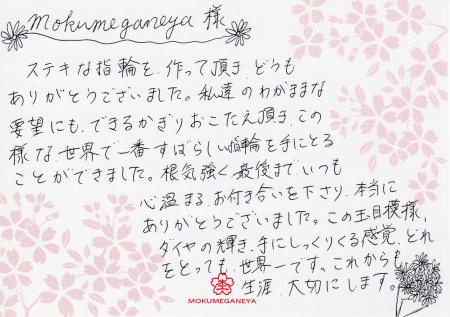 mokumeganeya 様
ステキな指輪を、作って頂き、どうも
ありがとうございました。私達のわがままな
要望にも、できるかぎりおこたえ頂き、この
様な、世界で一番すばらしい指輪を手にとる
ことができました。根気強く最後まで、いつも
心温まるお付き合いを下さり、本当に
ありがとうございました。この玉目模様、
ダイヤの輝き、手にしっくりくる感覚、どれ
をとっても、世界一です。これからも
生涯、大切にします。
MOKUMEGANEYA